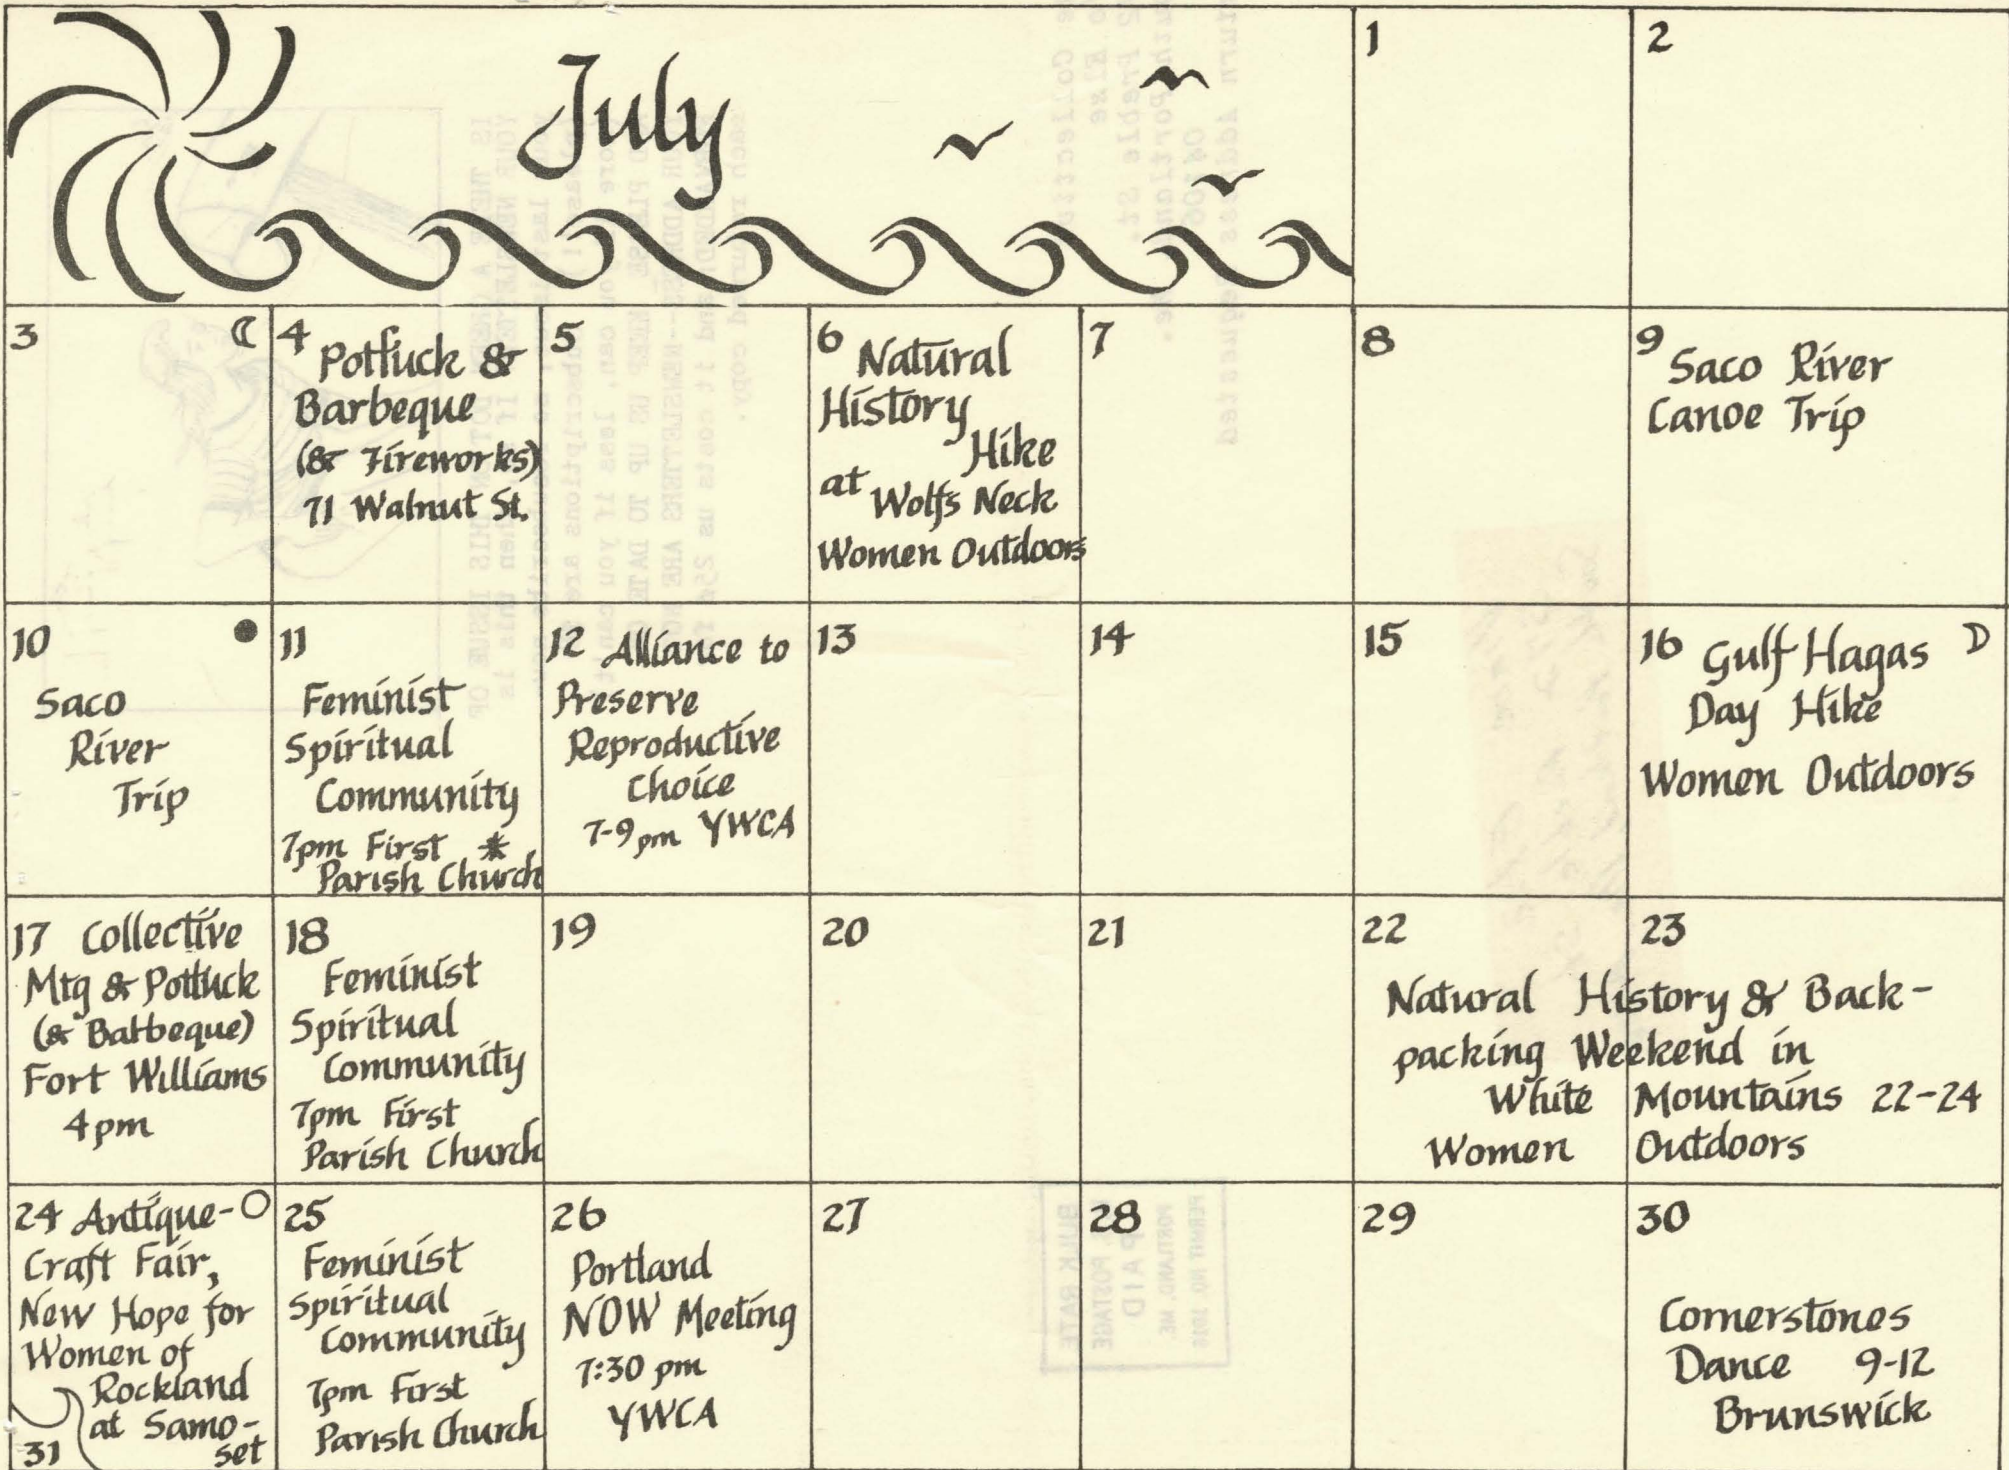 July
1
2
3
4 Potluck &
Barbeque
(& Fireworks)
71 Walnut St.
5
6 Natural
History
Hike
at Wolfs Neck
Women Outdoors
7
8
9 Saco River
Canoe Trip
10
Saco
River
Trip
11
Feminist
Spiritual
Community
7pm First *
Parish Church
12 Alliance to
Preserve
Reproductive
Choice
7-9pm YWCA
13
14
15
16 Gulf Hagas
Day Hike
Women Outdoors
17 Collective
Mtg & Potluck
(& Barbeque)
Fort Williams
4pm
18
Feminist
Spiritual
Community
7pm First
Parish Church
19
20
21
22 23
Natural History & Back-
packing Weekend in
White Mountains 22-24
Women Outdoors
24 Antique-
Craft Fair,
New Hope for
Women of
Rockland
at Samo-
set
31
25
Feminist
Spiritual
Community
7pm First
Parish Church
26
Portland
NOW Meeting
7:30 pm
YWCA
27
28
29
30
Cornerstones
Dance 9-12
Brunswick